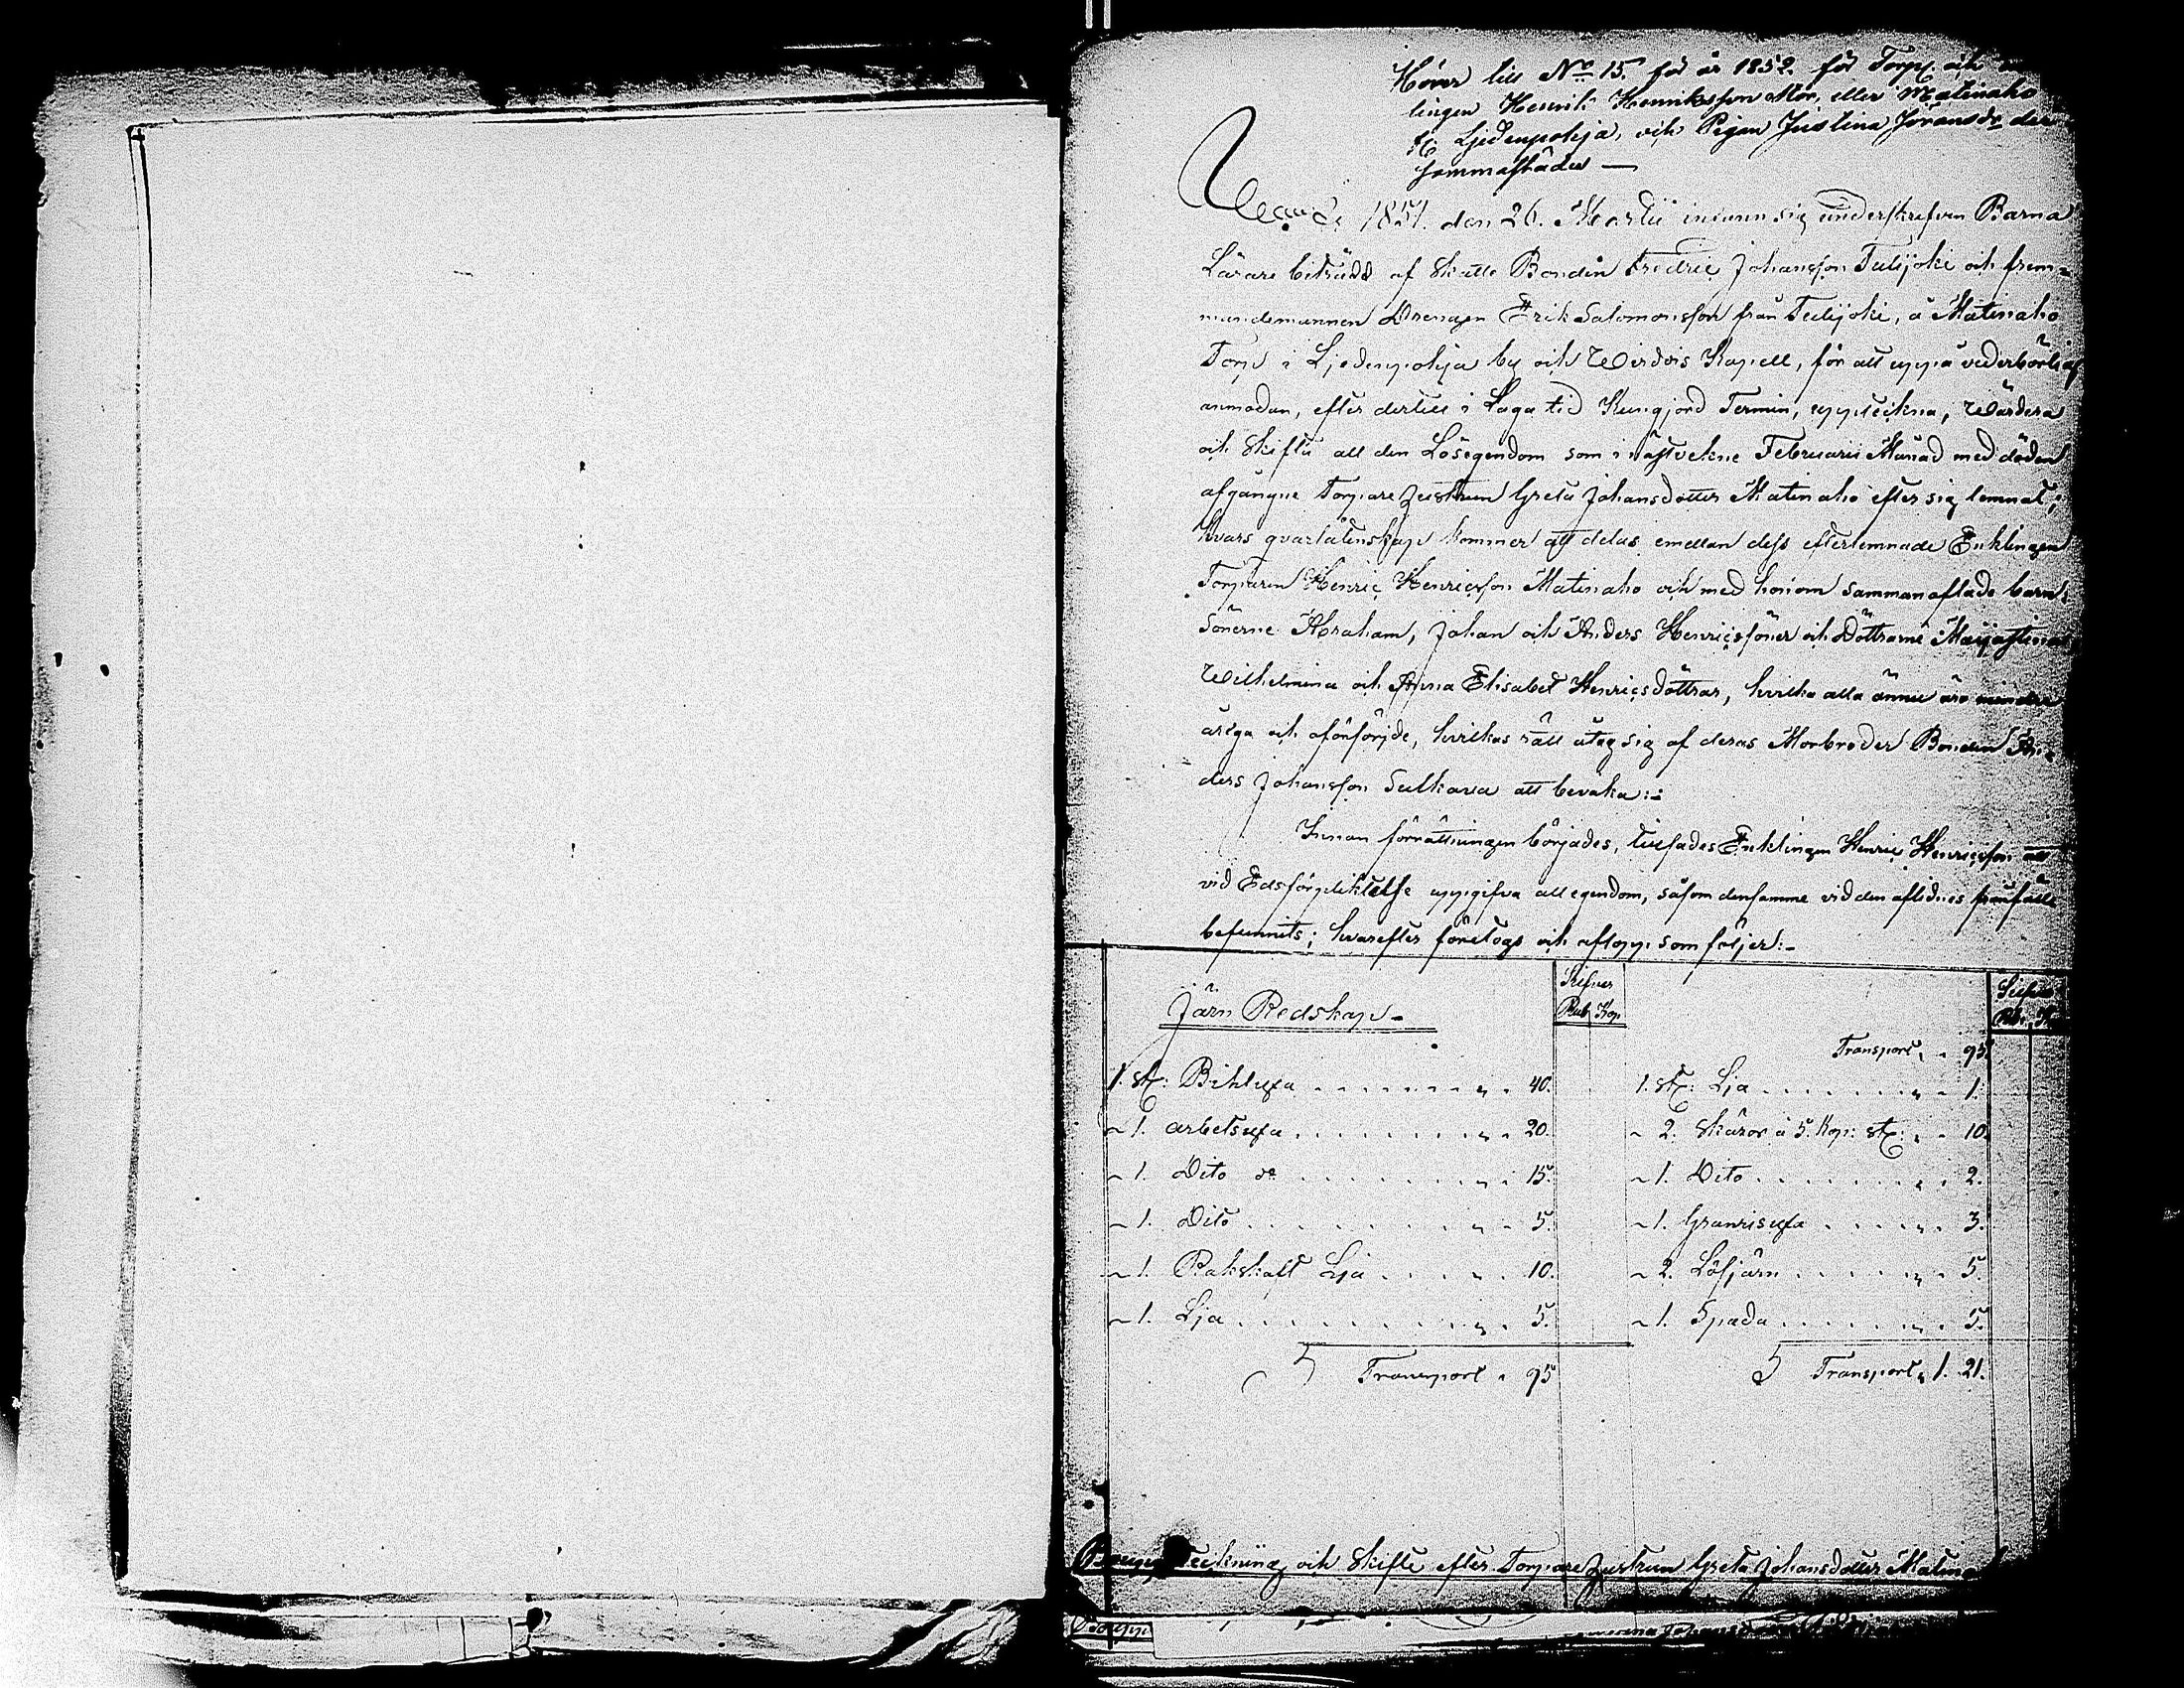 Hörer till No 15. för år 1852. för Torp. och
lingen Henrik Henriksson Mor, eller Matinaho
fr. Ljedenpohja, och Pigan Justina Joransdr der
sammastädes —
1851. den 26. Martii infunn sig underskrefven Barna
Lärare biträdd af Skatte Bonden Fredric Johansson Tulijoki och frem=
mandemannen Drengen Erik Salomonsson från Tulijoki, å Matinaho
Torp i Ljedenpohja by och Wirdois Kapell, för att uppå vederbörlig
anmodan, efter dertill i Laga tid Kungjord Termin, uppteckna, Wärdera
och Skifta all den Lösegendom som i nästvekne Februarii Månad med döden
afgångne Torpare Hustrun Greta Johansdotter Matinaho efter sig lemnat;
Hvars qvarlåtenskap kommer att delas emellan dess efterlemnade Enklingen
Torparen Henric Henricsson Matinaho och med honom sammanaflade barn:
Sönerne Abraham, Johan och Anders Henricssöner och Döttrarne Majastina
Wilhelmina och Anna Elisabet Henricsdöttrar, hvilka alla ännu äro minder
åriga och oförsörjde, hvilkas rätt åtog sig af deras Morbroder Bonden An=
ders Johansson Sulkava att bevaka:-
Innan förrättningen börjades, tillsades Enklingen Henric Henricsson att
vid Edsförpliktelse uppgifva all egendom, såsom densamme vid den aflidnes frånfälle
befunnits; hvarefter företogs och aflopp som följer:-
Järn Redskap-
Silfver
Rub. Kop
1. st: Bihluxa . . . . . . . . „ . 40.
~ 1. arbetsuxa . . . . . . . . „ . 20.
~ 1. Dito do . . . . . . . . „ . 15.
~ 1. Dito . . . . . . . . „ . 5.
~ 1. Rakskaft Lja . . . . . „ . 10.
~ 1. Lja . . . . . . . . „ . 5.
Transport „ 95
Silfver
Rub. K
Transport „ „ 95.
1. st: Lja . . . . . . . „ . 1.
~ 2. Skäror à 5. Kop: st: „ . 10.
~ 1. Dito . . . . . . . „ . 2.
~ 1. Granrisuxa . . . . „ . 3.
~ 2. Löfjärn . . . . . „ . 5.
~ 1. Spada . . . . . . „ . 5.
Transport „ 1. 21.
och Skifte efter Torpare Hustrun Greta Johansdotter Matina